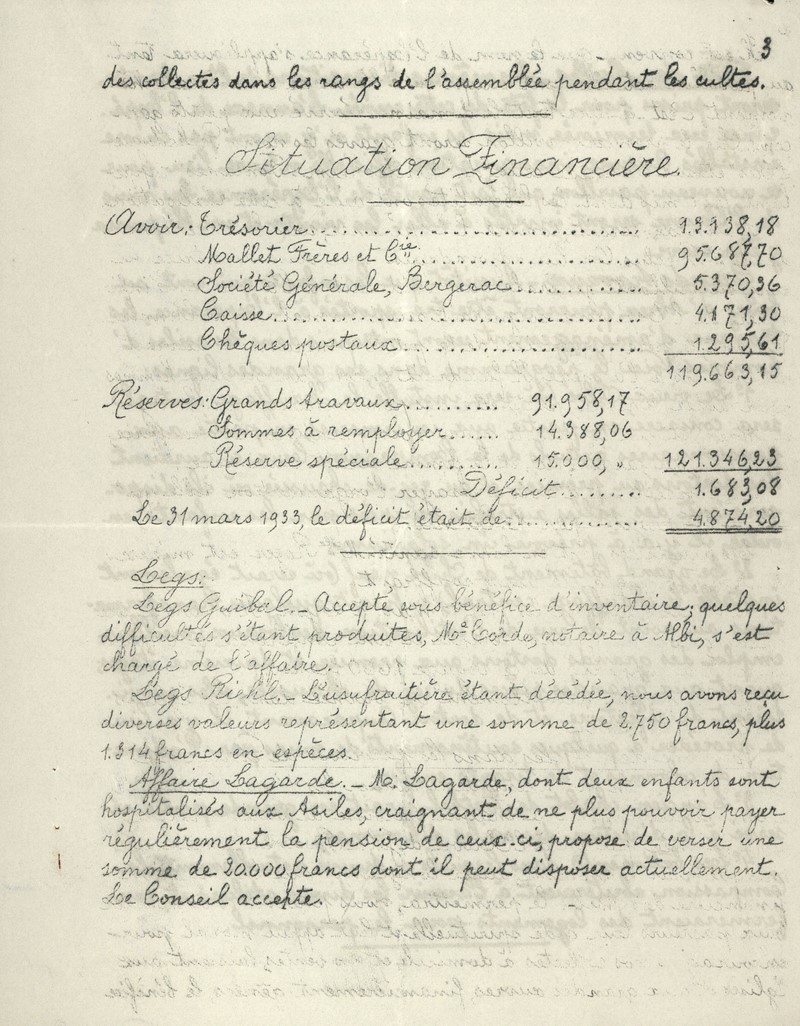 3
des collectes dans les rangs de l'assemblée pendant les cultes.
Situation Financière.
Avoir: Trésorier.......... 13.138,18
Mallet Frères et Cie.......... 95.687,70
Société Générale, Bergerac.......... 5.370,36
Caisse.......... 4.171,30
Chèques postaux.......... 1.295,61
119.663,15
Réserves: Grands travaux.......... 91.958,17
Sommes à remployer...... 14.388,06
Réserve spéciale.......... 15.000, " 121.346,23
Déficit........ 1.683,08
Le 31 mars 1933, le déficit était de.......... 4.874,20
Legs:
Legs Guibal. _ Accepté sous bénéfice d'inventaire; quelques
difficultés s'étant produites, Me Corde, notaire à Albi, s'est
chargé de l'affaire.
Legs Riehl. _ L'usufruitière étant décédée, nous avons reçu
diverses valeurs représentant une somme de 2.750 francs, plus
1.314 francs en espèces.
Affaire Lagarde. _ M. Lagarde, dont deux enfants sont
hospitalisés aux Asiles, craignant de ne plus pouvoir payer
régulièrement la pension de ceux-ci, propose de verser une
somme de 20.000 francs dont il peut disposer actuellement.
Le Conseil accepte.